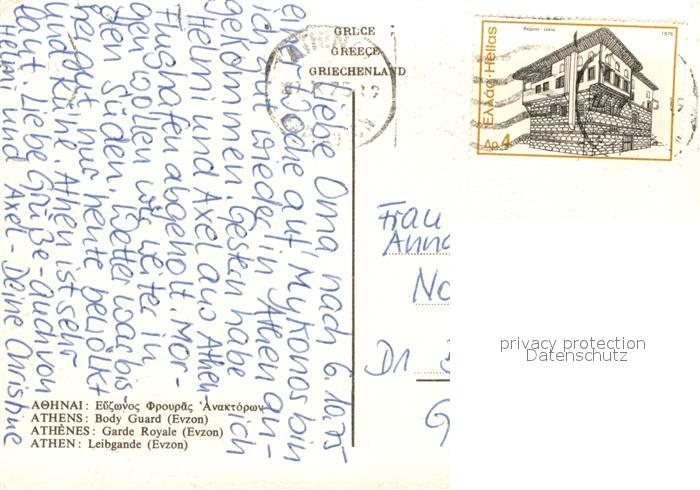 GRLCE
GREECE
GRIECHENLAND
Ελλάς-Hellas
Δρ 4
1975
6.10.75
Liebe Oma, nach
einer Woche auf Mykonos bin
ich gut wieder in Athen an-
gekommen. Gestern habe ich
Helmi und Axel aus Athen-
Flughafen abgeholt. Mor-
gen wollen wir weiter in
den Süden. Wetter war bis-
her gut, nur heute bewölkt
und kühl. Athen ist sehr
laut. Liebe Grüße - auch von
Helmi und Axel - Deine Christine
Frau
Anna
No
D1
G
privacy protection
Datenschutz
ΑΘΗΝΑΙ: Εὔζωνος Φρουρᾶς Ἀνακτόρων
ATHENS: Body Guard (Evzon)
ATHÈNES: Garde Royale (Evzon)
ATHEN: Leibgande (Evzon)